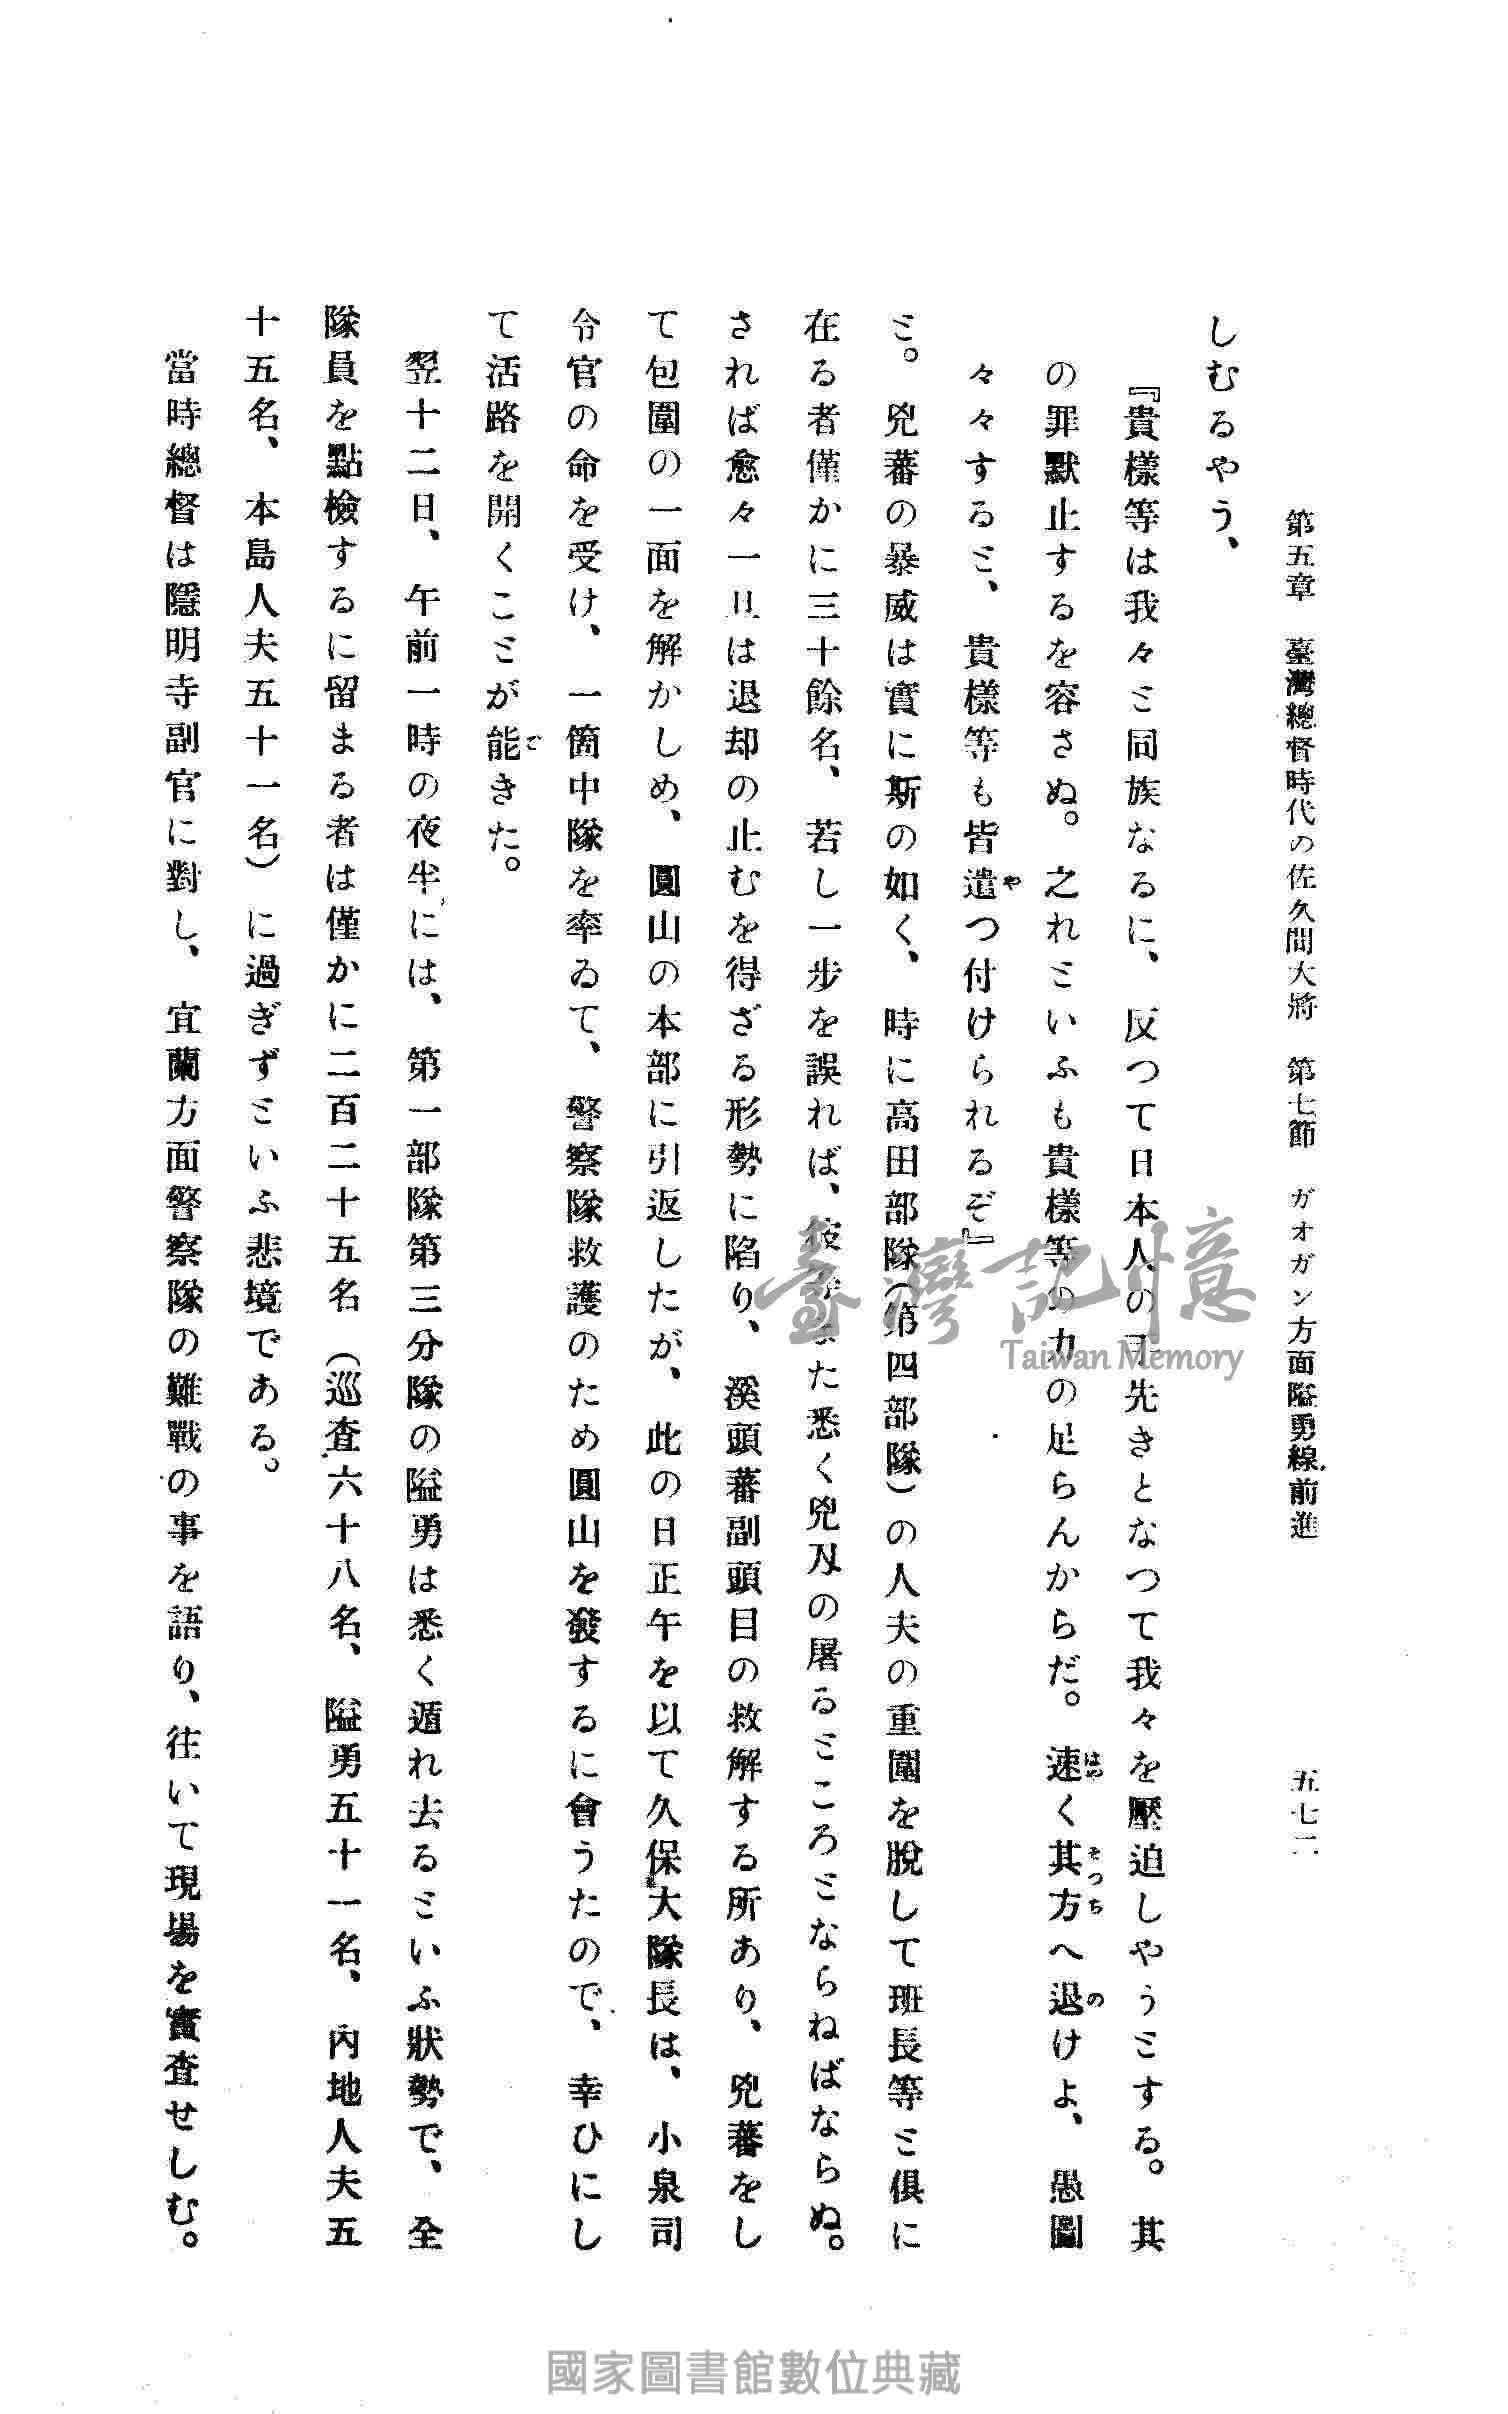 第五章 臺灣總督時代の佐久間大將 第七節 ガオガン方面隘勇線前進 五七二
しむるやう、
『貴樣等は我々と同族なるに、反つて日本人の手先きとなつて我々を壓迫しやうとする。其
の罪默止するを容さぬ。之れといふも貴樣等の力の足らんからだ。速く其方へ退けよ、愚圖
はや そつち の
々々すると、貴樣等も皆遣つ付けられるぞ』
や
と。兇蕃の暴威は實に斯の如く、時に高田部隊(第四部隊)の人夫の重圍を脫して班長等と俱に
在る者僅かに三十餘名、若し一步を誤れば、彼等また悉く兇刄の屠るところとならねばならぬ。
されば愈々一旦は退却の止むを得ざる形勢に陷り、溪頭蕃副頭目の救解する所あり、兇蕃をし
て包圍の一面を解かしめ、圓山の本部に引返したが、此の日正午を以て久保大隊長は、小泉司
令官の命を受け、一箇中隊を率ゐて、警察隊救護のため圓山を發するに會うたので、幸ひにし
て活路を開くことが能きた。
で
翌十二日、午前一時の夜半には、第一部隊第三分隊の隘勇は悉く遁れ去るといふ狀勢で、全
隊員を點檢するに留まる者は僅かに二百二十五名(巡査六十八名、隘勇五十一名、內地人夫五
十五名、本島人夫五十一名)に過ぎずといふ悲境である。
當時總督は隱明寺副官に對し、宜蘭方面警察隊の難戰の事を語り、往いて現場を實査せしむ。
臺灣記憶
Taiwan Memory
國家圖書館數位典藏